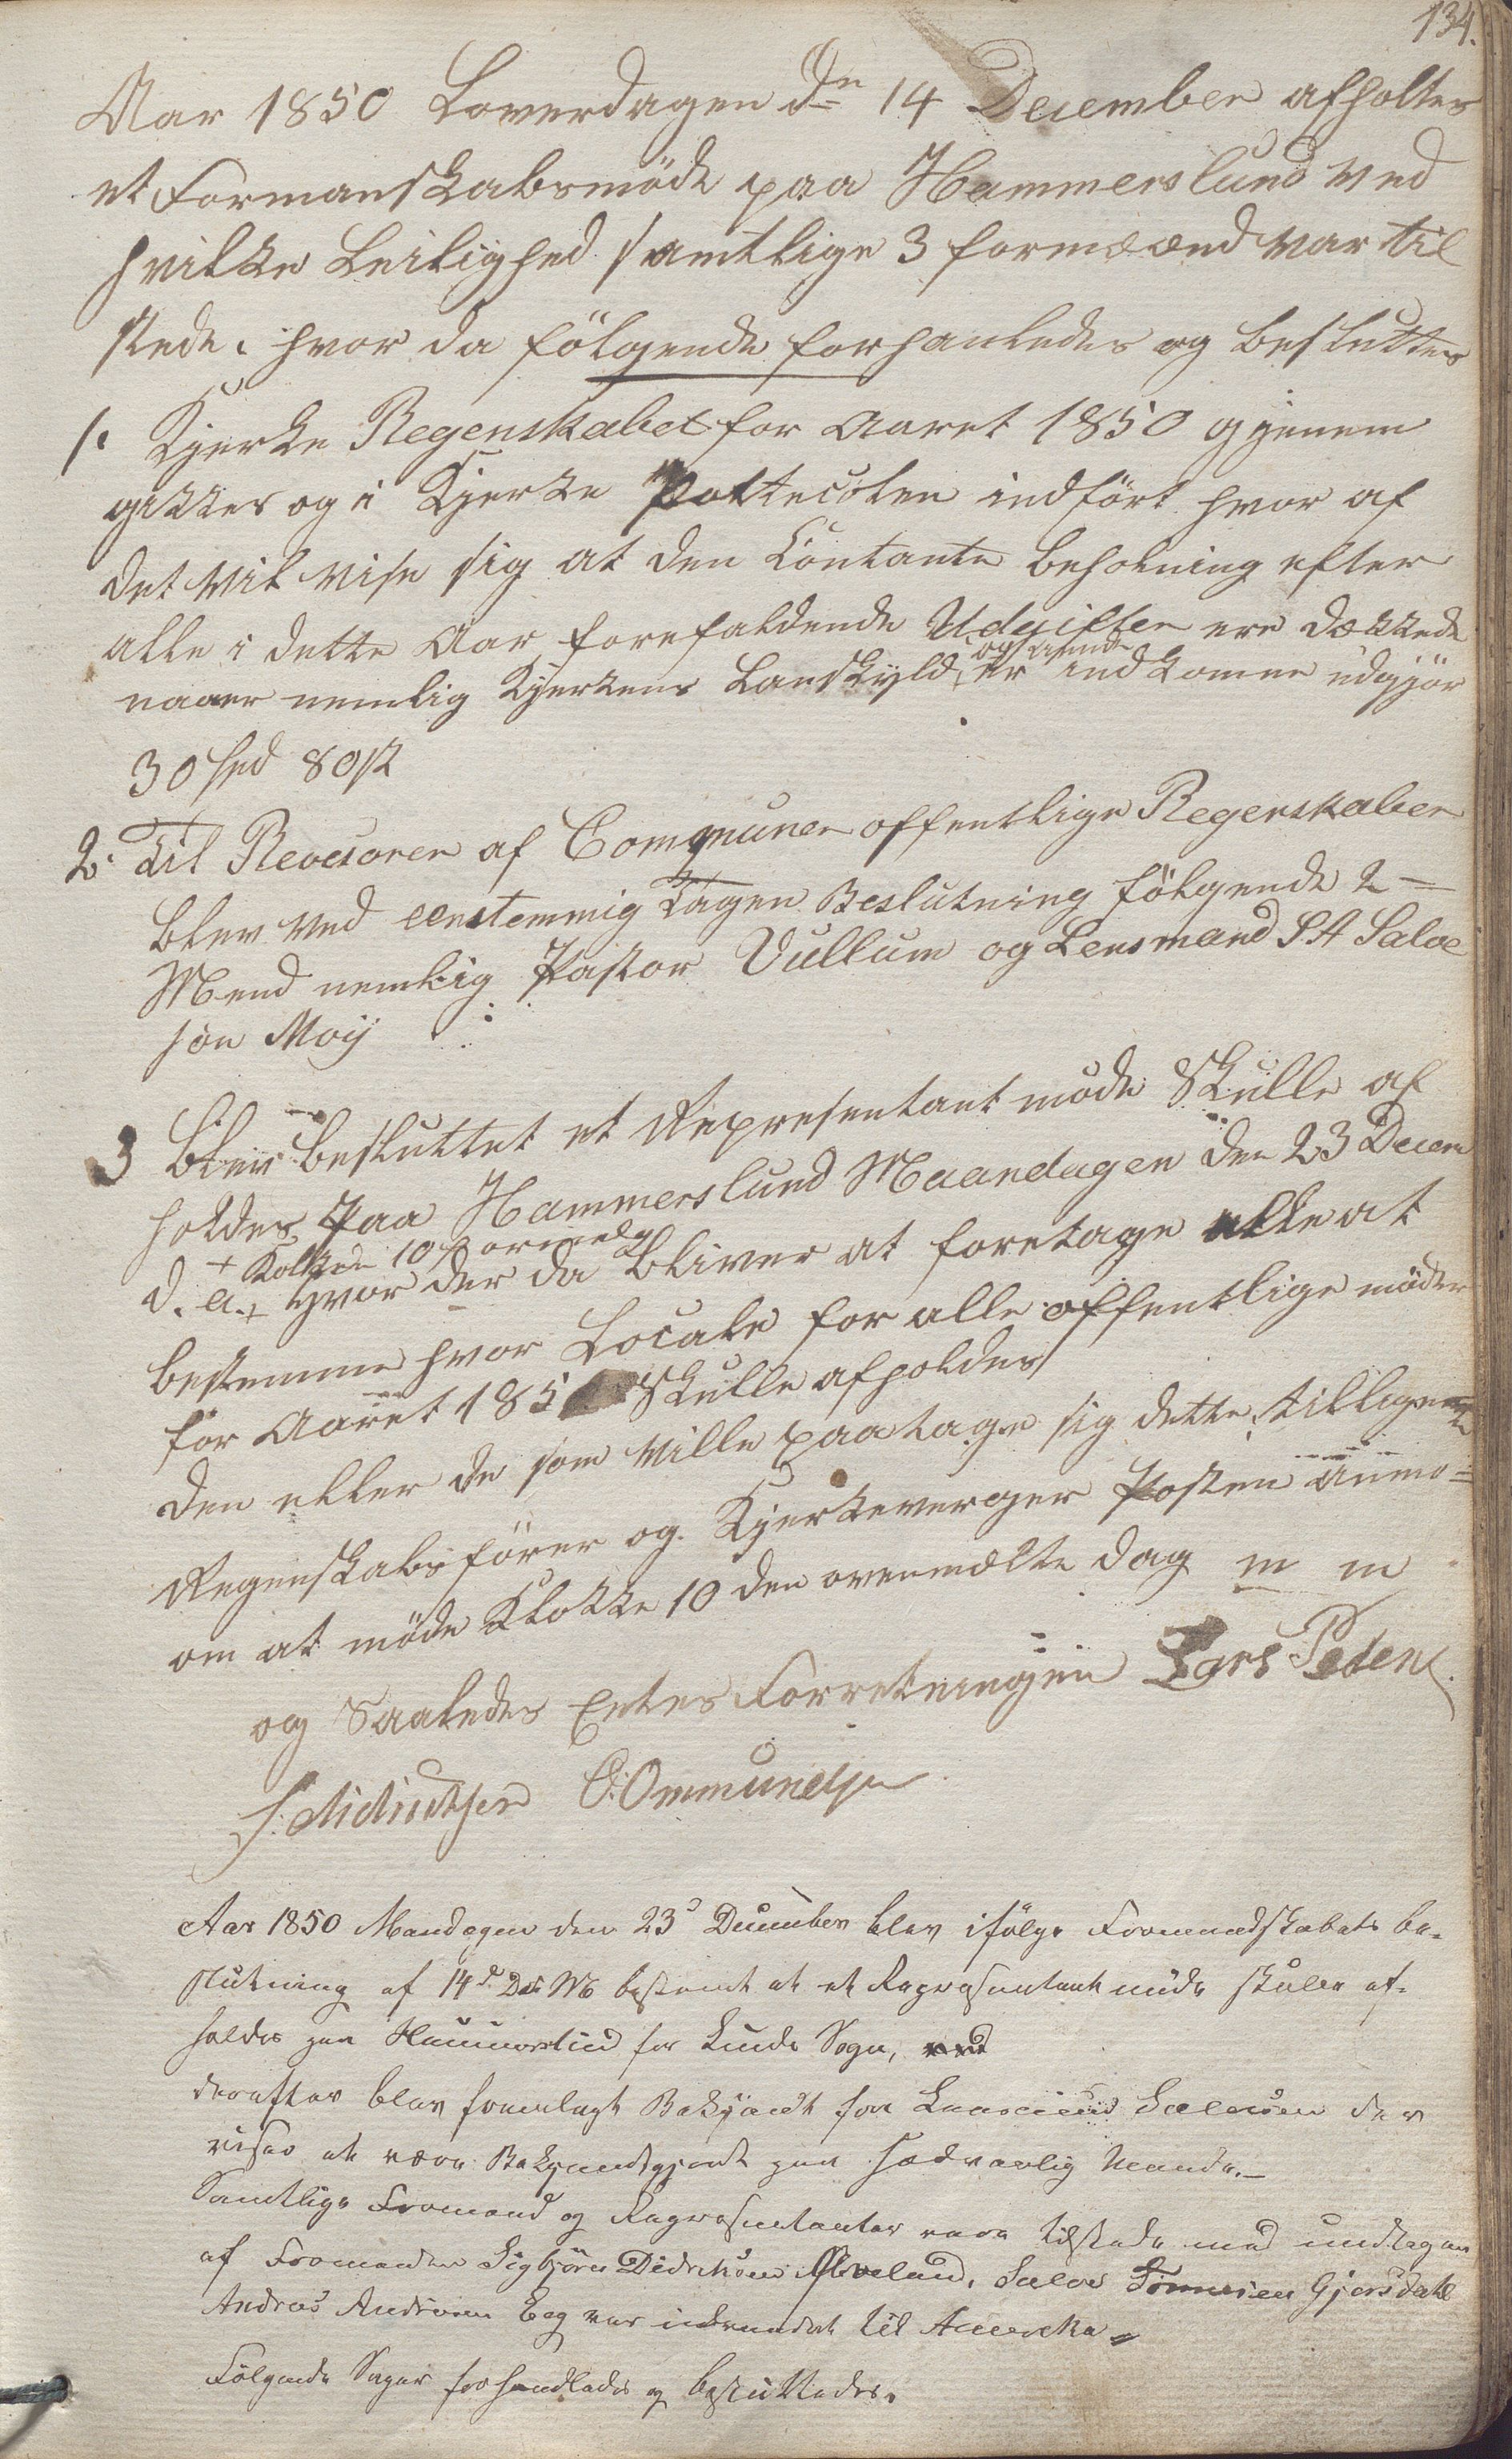 134.
Aar 1850 Loverdagen dn 14 December afholtes
et Formanskabsmöde paa Hammerslund ved
hvilke Leilighed samtlige 3 formænd var til
stede. hvor da fölgende forhanledes og besluttes
1. Kjerke Regenskabet for Aaret 1850 gjenem
gikkes og i Kjerke indfört hvor af
det vil vise sig at den Contante beholning efter
alle i dette Aar forefaldende Udgifter ere dækkede
naaer nemlig Kjerkens Lanskyld, er indkomne udgjör
30 sed 80 sk
2. Til Revesorer af Communer offentlige Regenskaber
blev ved eenstemmig tagen Beslutning fölgende 2
Mend nemlig Pastor Vullum og Lensmand S A Salve
sön Moij
3 Blev besluttet et Representant möde Skulle af
holdes Paa Hammerslund Maandagen den 23 Decem
+ Kokken 10 formidag
d. a. + hvor der da bliver at foretage at
bestemme hvor Locale for alle offentlige möder
for Aaret 185 Skulle afholdes
den eller de som ville paatage sig dette, tilligemed
Regenskabsförer og Kjerkeverger Posten anmo=
om at möde Klokke 10 den ovenmelte dag m m
og Saaledes Entes Forretningen Lars Peders.
S. Didrichsen O: Ommundsen
Aar 1850 Mandagen den 23d December blev ifölge Formandskabets be-
slutning af 14d Ds M bestemt at et Repræsentant möde skulde af-
holdes paa Hammerslund for Lunde Sogn,
derefter blev fremlagt Bekjendt fra Lensmand Salvesen der
viser at være Bekjendtgjort paa sædvanlig Maade.-
Samtlige Formænd og Repræsentanter vare tilstede med undtagen
af Formanden Sigbjörn Didriksen Oveland, Salve Tönnesen Gjersdahl
Andreas Andersen Eeg var til Amerika
Fölgende Sager forhandledes og besluttedes.